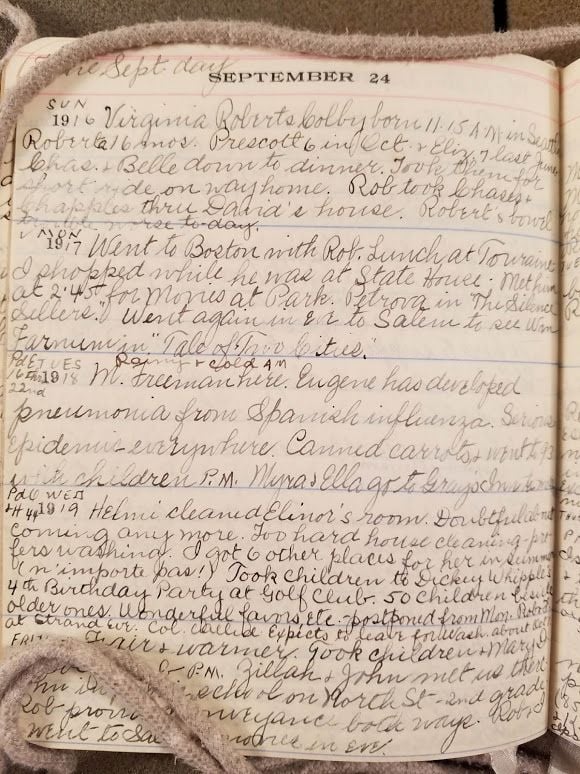 Fine Sept. day
SEPTEMBER 24
SUN
1916 Virginia Roberts Colby born 11.15 A.M. in Seattle
Roberta 16 mos. Prescott 6 in Oct. & Eliz. 7 last June
Chas. & Belle down to dinner. Took them for
short ride on way home. Rob took Chases &
Chapples thru David's house. Robert's bowel
trouble worse to-day.
MON
1917 Went to Boston with Rob. Lunch at Touraine
I shopped while he was at State House; Met him
at 2.45 for Movies at Park. Petrova in "The Silence
Sellers." Went again in Ev. to Salem to see Wm
Farnum in "Tale of Two Cities."
Rainy & cold AM
Pd E TUES
16th
22nd
1918 M. Freeman here. Eugene has developed
pneumonia from Spanish influenza. Serious
Epidemic everywhere. Canned carrots & went to
with children P.M. Myra & Ella go to Grays Inn
Pd U WED
1919 Helmi cleaned Elinor's room. Doubtful about
coming any more. Too hard house cleaning - pre-
fers washing. I got 6 other places for her in summer
(n'importe pas!) Took children to Dickey Whipple's
4th Birthday Party at Golf Club. 50 children beside
older ones. Wonderful favors, Etc. - postponed from Mon. Rob &
at Strand Ev. Col. called Expects to leave for Wash. about
FRI
Fair & warmer. Took children & Mary
P.M. Zillah & John met us there
school on North St - 2nd grade
Rob conveyance both ways. Rob &
went to movies in eve.